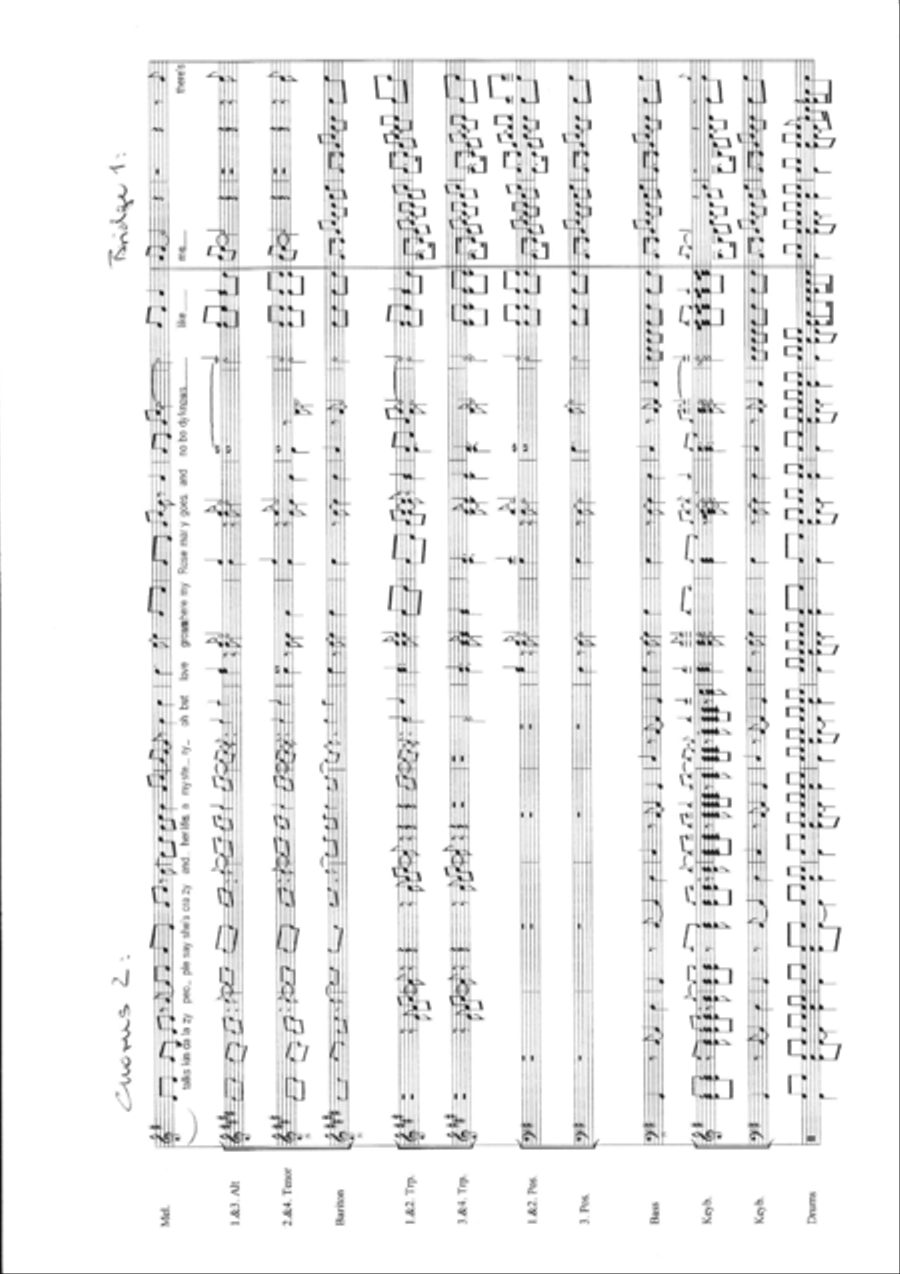 Chorus 2:
Bridge 1:
Mel.
talks kin da la zy peo_ ple say she's cra zy and her life's a myste_ ry_ oh but love grows where my Rose mar y goes and no bo dy knows like me there's
1.&3. Alt
2.&4. Tenor
Bariton
1.&2. Trp.
3.&4. Trp.
1.&2. Pos.
3. Pos.
Bass
Keyb.
Keyb.
Drums